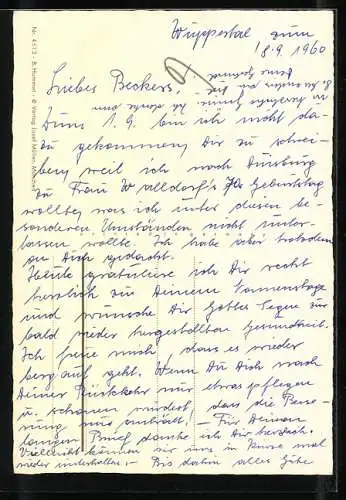 Nr. 4512 - B. Hummel - © Verlag Josef Müller, München
Wuppertal zum
18.9.1960
Liebes Beckers,
Zum 1. 9. bin ich nicht da-
zu gekommen, Dir zu schrei-
ben, weil ich nach Duisburg
zu Frau Walldorf's Geburtstag
wollte, was ich unter diesen be-
sonderen Umständen nicht unter-
lassen wollte. Ich habe aber trotzdem
an Dich gedacht.
Heute gratuliere ich Dir recht
herzlich zu Deinem Namenstage
und wünsche Dir Gottes Segen zur
bald wieder hergestellten Gesundheit.
Ich freue mich, dass es wieder
berg auf geht. Wenn Du Dich nach
Deiner Rückkehr nur etwas pflegen
u. schonen würdest, dass die Besse-
rung nur anhält! - Für Deinen
langen Brief danke ich Dir herzlich.
Vielleicht können wir uns in Kürze mal
wieder unterhalten. - Bis dahin alles Gute